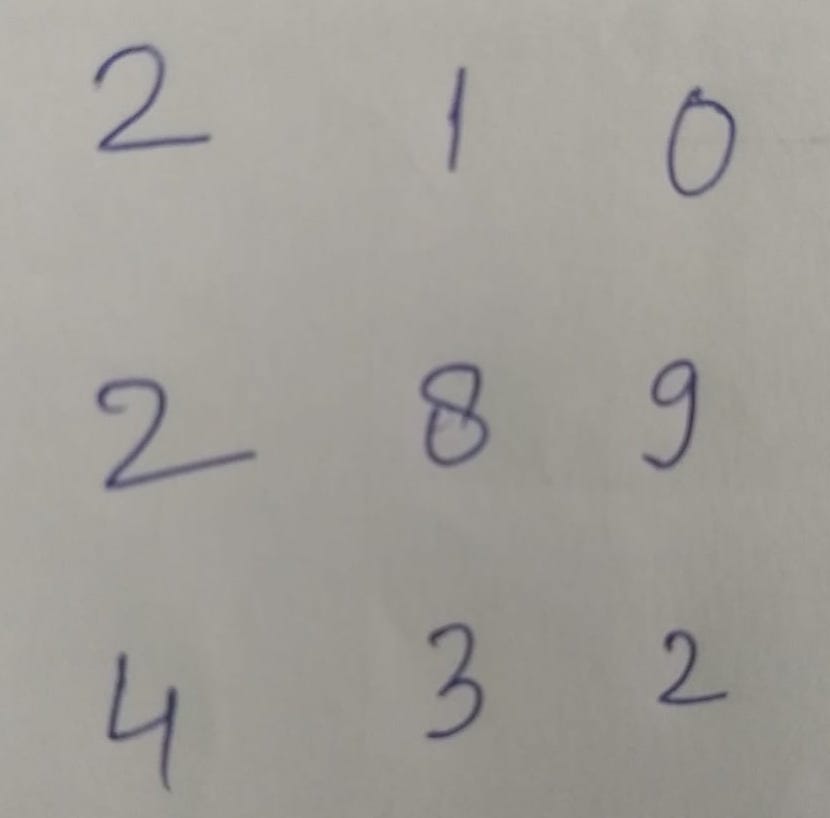 2 1 0
2 8 9
4 3 2